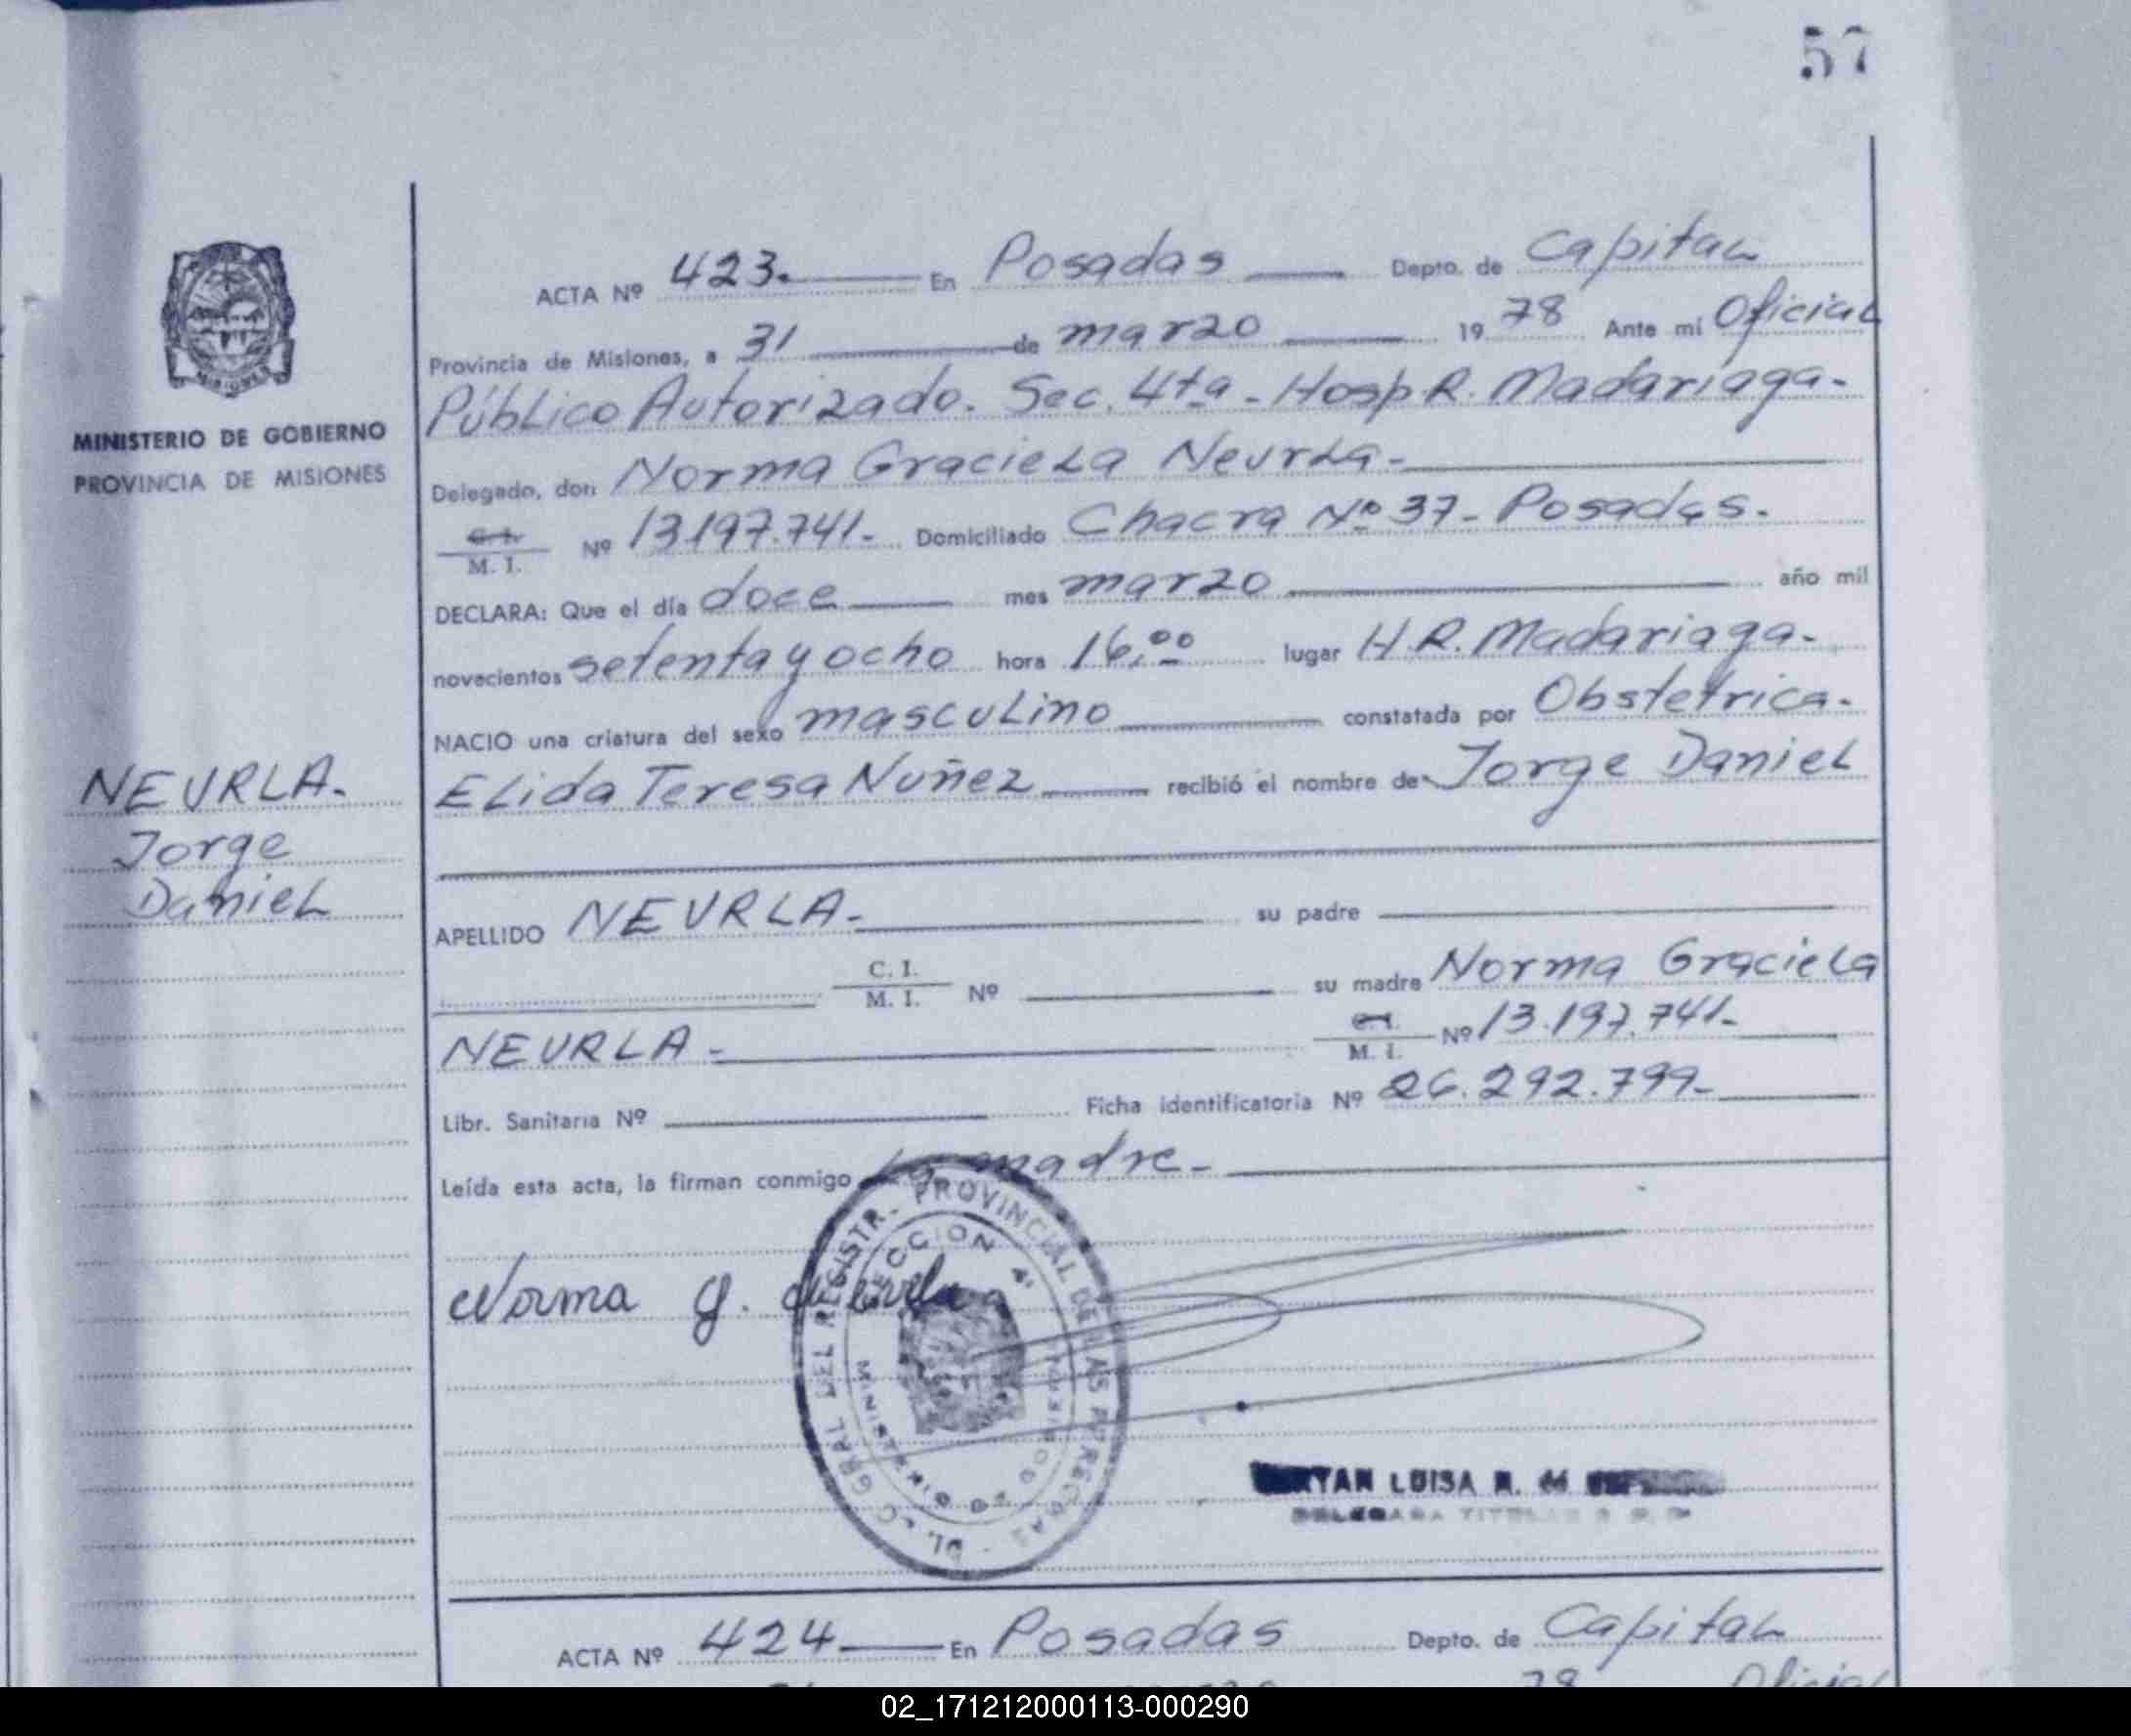 57
MINISTERIO DE GOBIERNO
PROVINCIA DE MISIONES
ACTA Nº 423. En Posadas Depto. de Capital
Provincia de Misiones, a 31 de marzo 1978 Ante mí Oficial
Público Autorizado. Sec. 4ta - Hosp R. Madariaga.
Delegado, don Norma Graciela Neurla-
C. I. M. I. Nº 13.197.741- Domiciliado Chacra Nº 37- Posadas.
DECLARA: Que el día doce mes marzo año mil
novecientos setenta y ocho hora 16,00 lugar H.R. Madariaga-
NACIO una criatura del sexo masculino constatada por Obstetrica-
Elida Teresa Nuñez recibió el nombre de Jorge Daniel
NEVRLA-
Jorge
Daniel
APELLIDO NEVRLA- su padre
C. I. M. I. Nº su madre Norma Graciela
NEURLA- C. I. M. I. Nº 13.197.741-
Libr. Sanitaria Nº Ficha identificatoria Nº 26.292.799-
Leída esta acta, la firman conmigo La madre-
Norma G. Nevrla
REGISTR. PROVINCIAL DE LAS PERSONAS
SECCION 4ª
MINISTERIO DE GOBIERNO
LUISA
ACTA Nº 424 En Posadas Depto. de Capital
78 Oficial
02_171212000113-000290